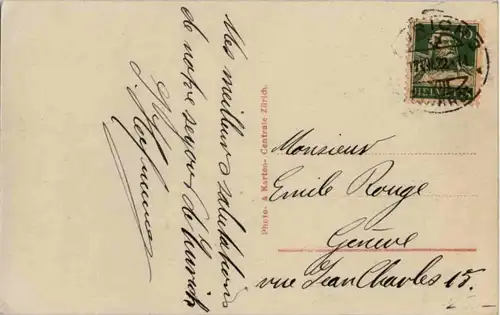 Mes meilleurs salutations
de notre sejour de Zurich
Photo- & Karten- Centrale Zürich.
Monsieur
Emile Rouge
Genève
rue Jean Charles 15.
10
HELVETIA